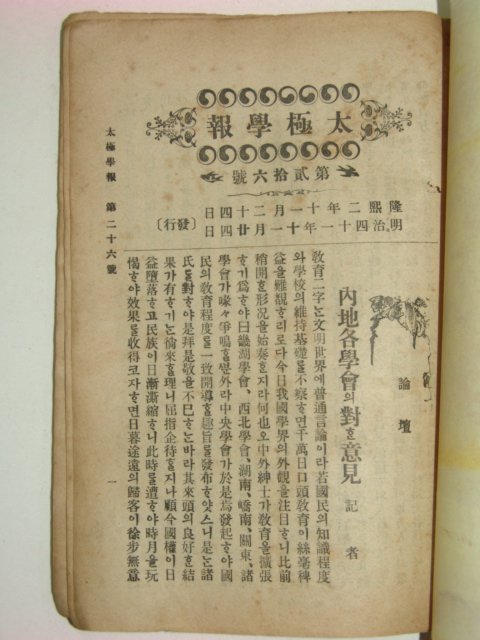 太極學報
第貳拾六號
隆熙二年十一月二十四日
明治四十一年十一月廿四日
〔發行〕
論壇
內地各學會의對ᄒᆞᆫ意見
記者
敎育二字ᄂᆞᆫ文明世界에普通言論이라若國民의知識程度
와學校의維持基礎ᄅᆞᆯ不察ᄒᆞ면千萬日口頭敎育이絲毫裨
益을難覩ᄒᆞ리로다今日我國學界의外觀을注目ᄒᆞ니比前
稍開ᄒᆞᆫ形况을始奏ᄒᆞᆫ지라何也오中外紳士가敎育을擴張
ᄒᆞ기爲ᄒᆞ야曰畿湖學會、西北學會、湖南、嶠南、關東、諸
學會가喙々爭鳴ᄒᆞᆯᄲᅮᆫ外라中央學會가於是焉發起ᄒᆞ야國
民의敎育程度ᄅᆞᆯ一致開導ᄒᆞᆯ趣旨ᄅᆞᆯ發布ᄒᆞ얏스니是ᄂᆞᆫ諸
氏ᄅᆞᆯ對ᄒᆞ야是拜是敬을不已ᄒᆞᄂᆞᆫ바라其來頭의良好ᄒᆞᆫ結
果가有ᄒᆞ기ᄂᆞᆫ徜來ᄒᆞᆯ理니屈指企待ᄒᆞᆯ지나顧今國權이日
益墮落ᄒᆞ고民族이日漸澌縮ᄒᆞ니此時ᄅᆞᆯ遭ᄒᆞ야時月을玩
愒ᄒᆞ야效果ᄅᆞᆯ收得코자ᄒᆞ면日暮途遠의歸客이徐步無意
太極學報 第二十六號
一